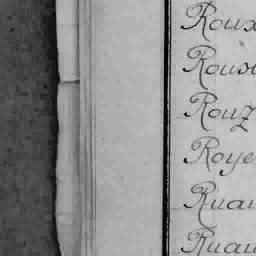 Roux
Rous
Rouz
Roye
Ruau
Ruau